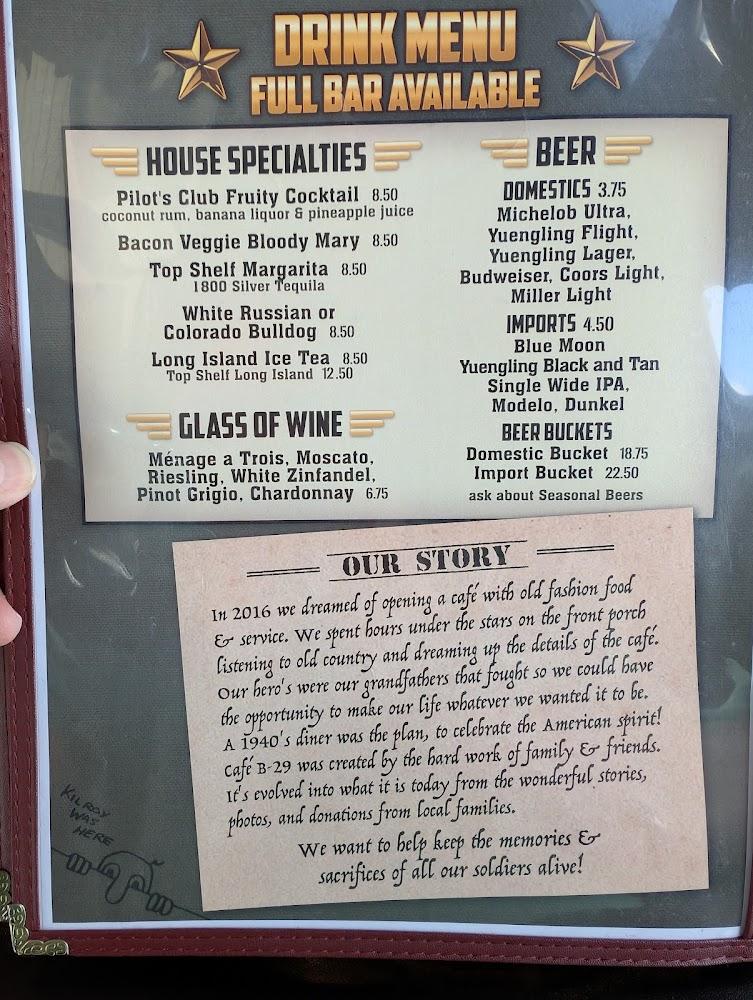 DRINK MENU
FULL BAR AVAILABLE
HOUSE SPECIALTIES
Pilot's Club Fruity Cocktail 8.50
coconut rum, banana liquor & pineapple juice
Bacon Veggie Bloody Mary 8.50
Top Shelf Margarita 8.50
1800 Silver Tequila
White Russian or
Colorado Bulldog 8.50
Long Island Ice Tea 8.50
Top Shelf Long Island 12.50
GLASS OF WINE
Ménage a Trois, Moscato,
Riesling, White Zinfandel,
Pinot Grigio, Chardonnay 6.75
BEER
DOMESTICS 3.75
Michelob Ultra,
Yuengling Flight,
Yuengling Lager,
Budweiser, Coors Light,
Miller Light
IMPORTS 4.50
Blue Moon
Yuengling Black and Tan
Single Wide IPA,
Modelo, Dunkel
BEER BUCKETS
Domestic Bucket 18.75
Import Bucket 22.50
ask about Seasonal Beers
OUR STORY
In 2016 we dreamed of opening a café with old fashion food
& service. We spent hours under the stars on the front porch
listening to old country and dreaming up the details of the café.
Our hero's were our grandfathers that fought so we could have
the opportunity to make our life whatever we wanted it to be.
A 1940's diner was the plan, to celebrate the American spirit!
Café B-29 was created by the hard work of family & friends.
It's evolved into what it is today from the wonderful stories,
photos, and donations from local families.
We want to help keep the memories &
sacrifices of all our soldiers alive!
KILROY
WAS
HERE